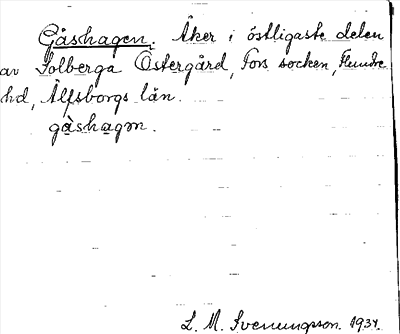 Gåshagen. Åker i östligaste delen
av Solberga Östergård, Fors socken, Flundre
hd, Älfsborgs län.
gåshagən.
L. M. Svenungsson. 1934.